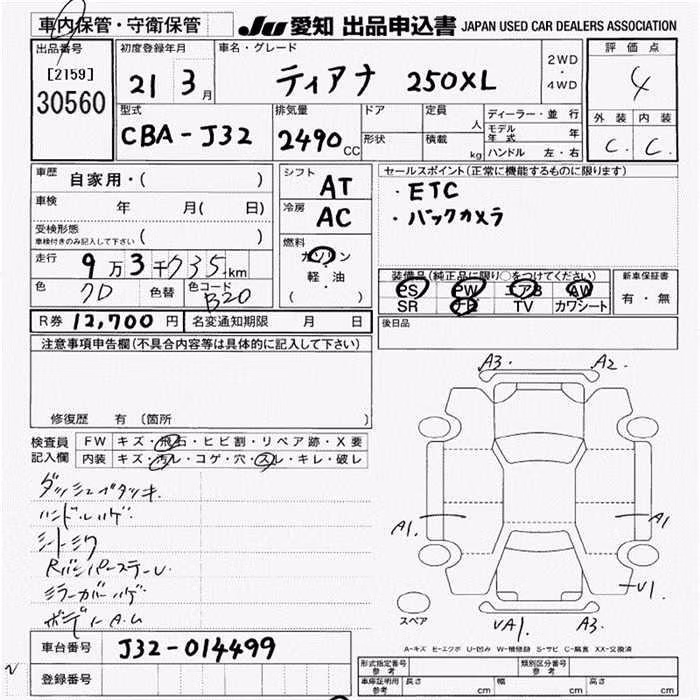 車内保管・守衛保管
JU 愛知 出品申込書 JAPAN USED CAR DEALERS ASSOCIATION
出品番号
[2159]
30560
初度登録年月
21 3月
車名・グレード
ティアナ 250XL
2WD
・
4WD
評価点
4
外装 内装
C. C.
型式
CBA-J32
排気量
2490CC
ドア
形状
定員 人
積載 kg
ディーラー・並行
モデル年式 年
ハンドル 左・右
車歴 自家用・( )
車検 年 月( 日)
受検形態
車検付きのみ記入して下さい ( )
走行 9万3千735km
色 クロ 色替 色コード B20
シフト AT
冷房 AC
燃料
ガソリン
・
軽・油
( )
セールスポイント(正常に機能するものに限ります)
・ETC
・バックカメラ
装備品(純正品に限り○をつけてください)
PS PW エアB AW
SR ナビ TV カワシート
新車保証書
有・無
R券 12,700円 名変通知期限 月 日
後日品
注意事項申告欄(不具合内容等は具体的に記入して下さい)
修復歴 有 (箇所 )
検査員
記入欄
FW キズ・飛石・ヒビ割・リペア跡・X要
内装 キズ・ヨレ・コゲ・穴・スレ・キレ・破レ
ダッシュベタツキ
ハンドルハゲ
シートシワ
Rバンパーステーム
ミラーカバーハゲ
ボディーA.U
A3. A2.
A1. A1
U1.
UA1. A3.
スペア
A-キズ E-エクボ U-凹み W-補修跡 S-サビ C-腐食 XX-交換済
車台番号 J32-014499
登録番号
形式指定番号 参考
類別区分番号 参考
車庫証明用 参考 長さ cm 幅 cm 高さ cm